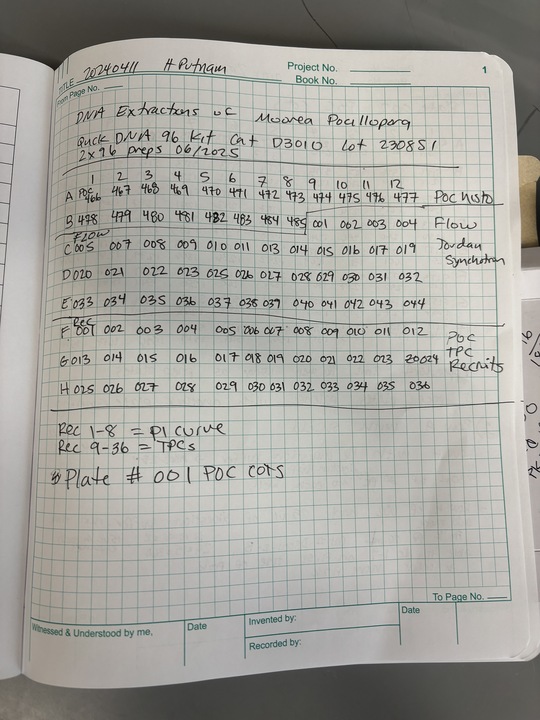 Project No.
TITLE 20240411 H Putnam
Book No.
1
From Page No.
DNA Extractions of Moorea Pocillopora
Quick DNA 96 Kit Cat D3010 Lot 230851
2x96 preps 06/2025
1 2 3 4 5 6 7 8 9 10 11 12
A Poc 466 467 468 469 470 471 472 473 474 475 476 477 Poc histo
B 478 479 480 481 482 483 484 485 001 002 003 004 Flow
FLOW Jordan
C 005 007 008 009 010 011 013 014 015 016 017 019 Synchotron
D 020 021 022 023 025 026 027 028 029 030 031 032
E 033 034 035 036 037 038 039 040 041 042 043 044
Rec
F 001 002 003 004 005 006 007 008 009 010 011 012 POC
G 013 014 015 016 017 018 019 020 021 022 023 024 TPC
Recruits
H 025 026 027 028 029 030 031 032 033 034 035 036
Rec 1-8 = PI curve
Rec 9-36 = TPCs
Plate # 001 POC
To Page No.
Witnessed & Understood by me,
Date
Invented by:
Date
Recorded by: